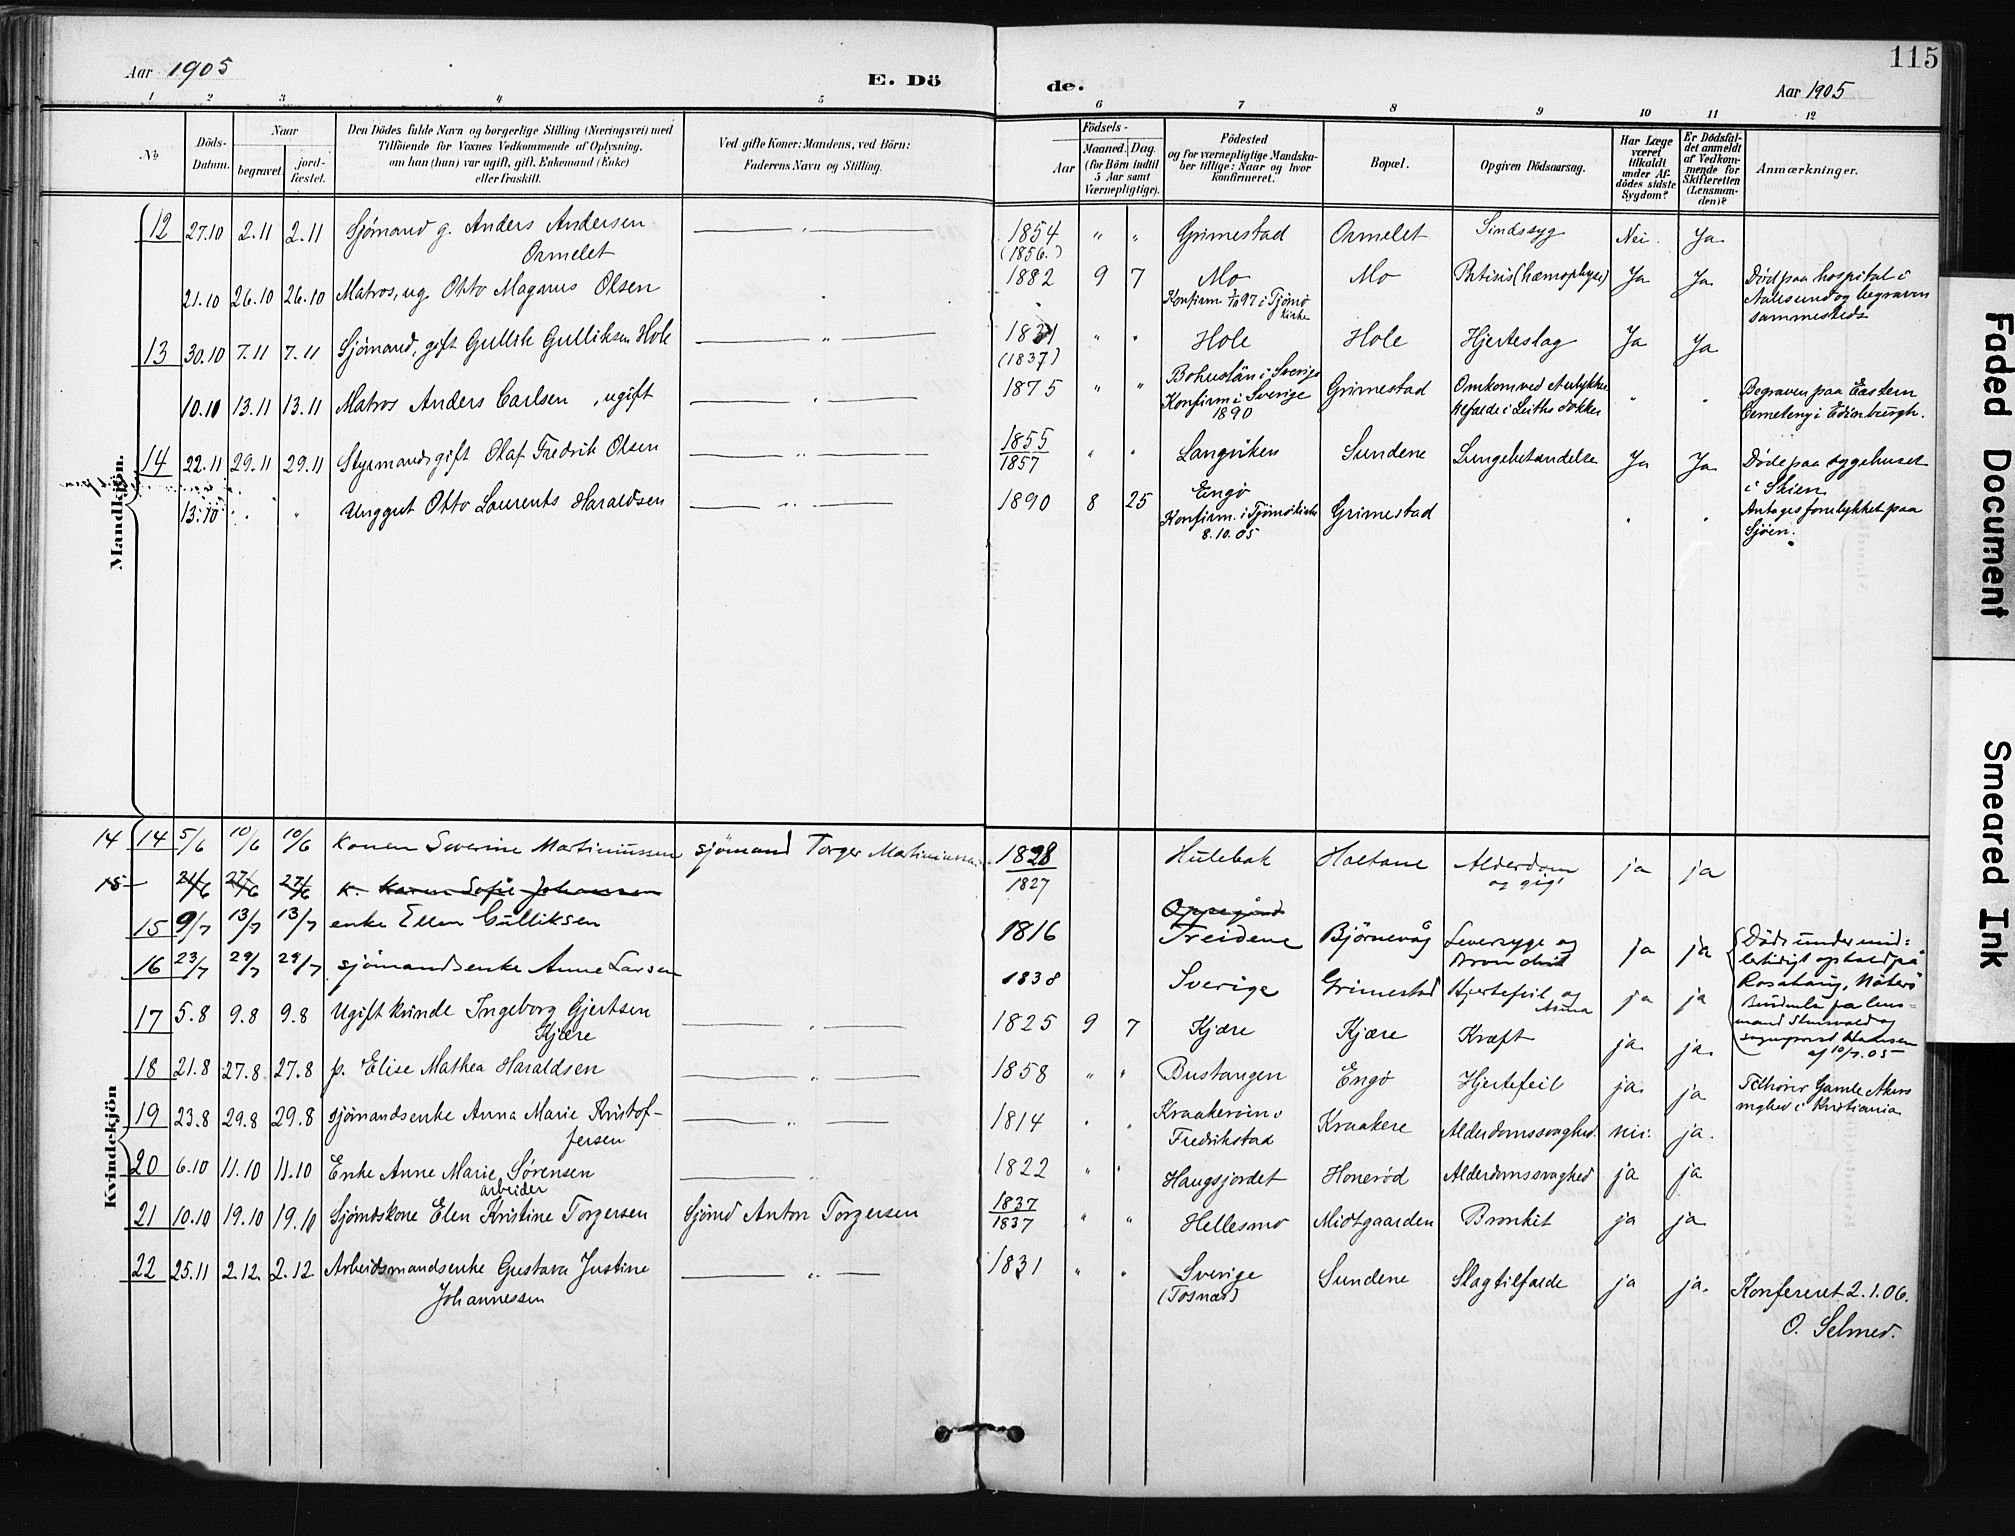 115
Aar 1905
E. Dö
de.
Aar 1905
1 2 3 4 5 6 7 8 9 10 11 12
No
Döds-Datum.
Naar
begravet.
jordfæstet.
Den Dödes fulde Navn og borgerlige Stilling (Næringsvei) med
Tilföiende for Voxnes Vedkommende af Oplysning,
om han (hun) var ugift, gift, Enkemand (Enke)
eller fraskilt.
Ved gifte Koner: Mandens, ved Börn:
Faderens Navn og Stilling.
Födsels-
Aar
Maaned. Dag.
(for Börn indtil
5 Aar samt
Værnepligtige).
Födested
og for værnepligtige Mandskaber tillige: Naar og hvor
konfirmeret.
Bopæl.
Opgiven Dödsaarsag.
Har Læge
været
tilkaldt
under Afdödes sidste
Sygdom?
Er Dödsfaldet anmeldt
af Vedkommende for
Skifteretten
(Lensmanden)?
Anmærkninger.
Mandkjön.
12 27.10 2.11 2.11 Sjömand g. Anders Andersen
Ormelet
1854 " " Grimestad Ormelet Sindssyg Nei. Ja
(1856.)
21.10 26.10 26.10 Matros, ug. Otto Magnus Olsen
1882 9 7 Mo Mo Ja Ja Död paa hospital i
Konfirm 97 i Tjömö
kirke
Aalesund og begraven
sammesteds
13 30.10 7.11 7.11 Sjömand, gift Gullik Gulliksen Hole
1831 " " Hole Hole Hjerteslag Ja Ja
(1837)
10.10 13.11 13.11 Matros Anders Carlsen, ugift
1875 " " Bohuslän i Sverige
Konfirm i Sverige
1890
Grimestad
Omkom ved et ulykkestilfælde i Leiths dokker
" "
Begraven paa Eastern
Cemetery i Edinburgh.
14 22.11 29.11 29.11 Styrmand gift Olaf Fredrik Olsen
1855
1857
" " Langviken Sundene Lungebetændelse Ja Ja Döde paa sygehuset
i Skien
13.10 " " Unggut Otto Laurents Haraldsen
1890 8 25 Engö
Konfirm. i Tjömö kirke
8.10.05
Grimestad " "
Antages forulykket paa
Sjöen.
Kvindekjön
14 14 5/6 10/6 10/6 Konen Severine Martiniussen sjömand Torger Martiniussen
1828
1827
Hulebak Haltane Alderdom
og gigt
ja ja
15 24/6 27/6 27/6 K. Karen Sofie Johansen
15 9/7 13/7 13/7 enke Ellen Gulliksen
1816 Oppegård
Treidene
Björnevåg Leversyge og
ja ja
Död under midlertidigt ophold på
16 23/7 29/7 29/7 sjömandsenke Anne Larsen
1838 Sverige Grimestad Hjertefeil og
Astma
ja ja
Rosahaug, Nöterö
af 10/7.05
17 5.8 9.8 9.8 Ugift kvinde Ingeborg Gjertsen
Kjære
1825 9 7 Kjære Kjære Kræft ja ja.
18 21.8 27.8 27.8 p. Elise Mathea Haraldsen
1858 " " Bustangen Engö Hjertefeil ja. ja
Tilhörer Gamle Akers
mghed i Kristiania
19 23.8 29.8 29.8 sjömandsenke Anna Marie Kristoffersen
1814 " " Kraakeröen v
Fredrikstad
Kraakere Alderdomssvaghed. nei. ja.
20 6.10 11.10 11.10 Enke Anne Marie Sörensen
arbeider
1822 " " Haugsjordet Honeröd Alderdomssvaghed ja ja
21 10.10 19.10 19.10 Sjömdskone Elen Kristine Torgersen Sjömd Anton Torgersen
1837
1837
" " Hellesmo Midtgaarden Bronkit ja ja
22 25.11 2.12. 2.12 Arbeidsmandsenke Gustava Justine
Johannessen
1831 " " Sverige
(Tosnæs)
Sundene Slagtilfælde ja ja.
Konfereret 2.1.06.
O. Selmer.
Faded Document
Smeared Ink